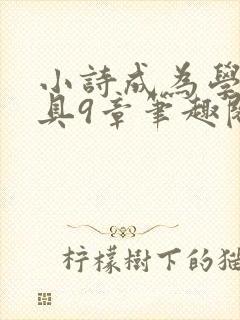 小詩成為學
具9章筆趣閣
柠檬樹下的猫